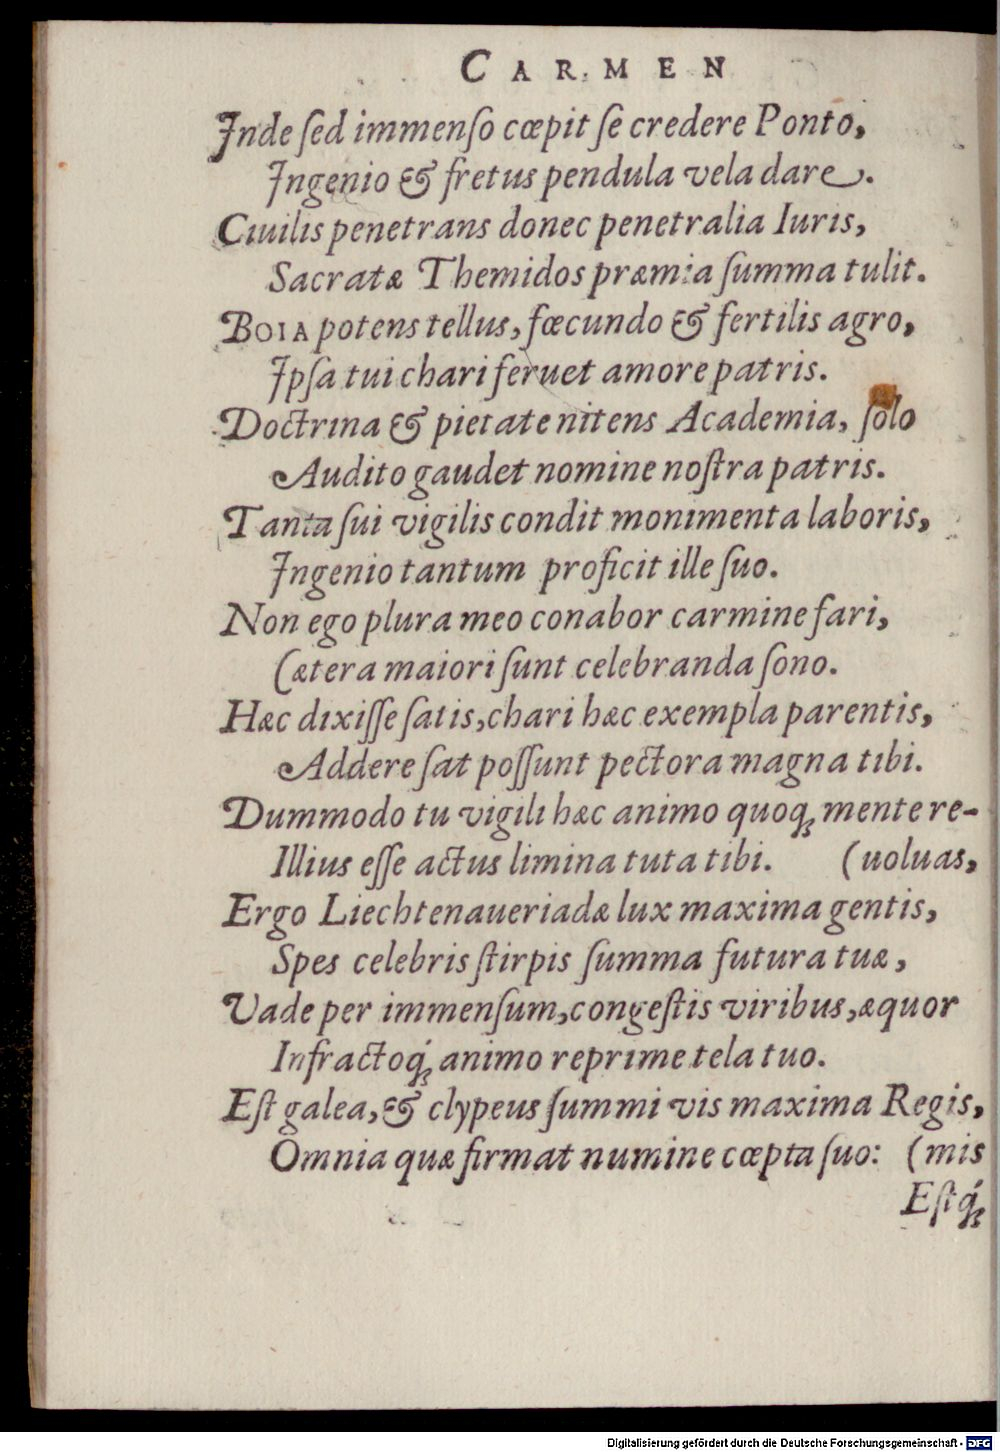 CARMEN
Inde ſed immenſo cœpit ſe credere Ponto,
Ingenio & fretus pendula vela dare.
Ciuilis penetrans donec penetralia Iuris,
Sacratæ Themidos præmia ſumma tulit.
BOIA potens tellus, fœcundo & fertilis agro,
Ipſa tui chari feruet amore patris.
Doctrina & pietate nitens Academia, ſolo
Audito gaudet nomine noſtra patris.
Tanta ſui vigilis condit monimenta laboris,
Ingenio tantum proficit ille ſuo.
Non ego plura meo conabor carmine fari,
Cætera maiori ſunt celebranda ſono.
Hæc dixiſſe ſatis, chari hæc exempla parentis,
Addere ſat poſſunt pectora magna tibi.
Dummodo tu vigili hæc animo quoq; mente re-
Illius eſſe actus limina tuta tibi. (uoluas,
Ergo Liechtenaueriadæ lux maxima gentis,
Spes celebris ſtirpis ſumma futura tuæ,
Vade per immenſum, congeſtis viribus, æquor
Infractoq́; animo reprime tela tuo.
Eſt galea, & clypeus ſummi vis maxima Regis,
Omnia quæ firmat numine cœpta ſuo: (mis
Eſtq́;
Digitalisierung gefördert durch die Deutsche Forschungsgemeinschaft - DFG